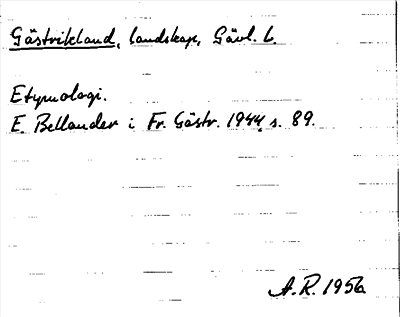 Gästrikland, landskap, Gävl. L.
Etymologi.
E. Bellander i Fr. Gästr. 1944, s. 89.
A.R. 1956